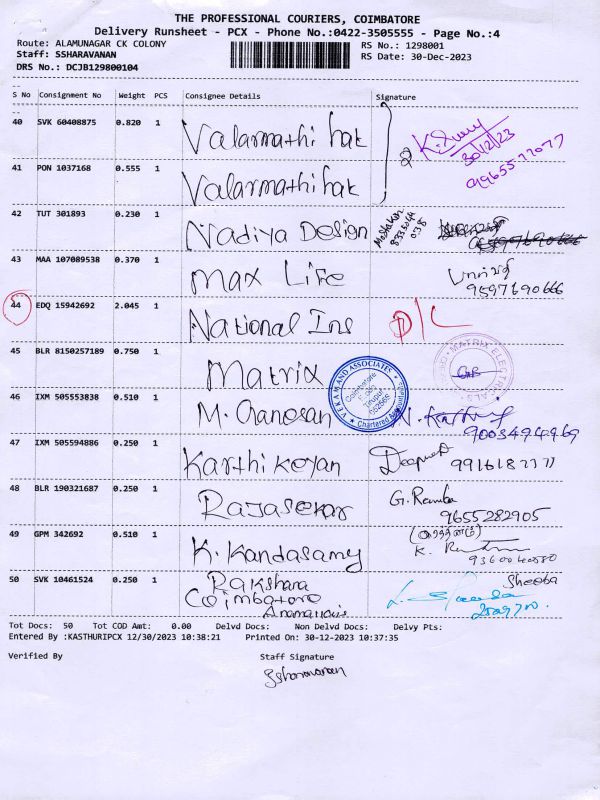 THE PROFESSIONAL COURIERS, COIMBATORE
Delivery Runsheet - PCX - Phone No.:0422-3505555 - Page No.:4
Route: ALAMUNAGAR CK COLONY
Staff: SSHARAVANAN
DRS No.: DCJB129800104
RS No.: 1298001
RS Date: 30-Dec-2023
S No Consignment No Weight PCS Consignee Details Signature
40 SVK 60408875 0.820 1 Valarmathi hat
30/12/23
41 PON 1037168 0.555 1 Valarmathi hat
42 TUT 301893 0.230 1 Nadiya Design
43 MAA 107089538 0.370 1 Max Life
9597690666
44 EDQ 15942692 2.045 1 National Ins D/C
45 BLR 8150257189 0.750 1 Matrix
MATRIX ELECTRICALS
VEKAM AND ASSOCIATES
Coimbatore
Tirupur
Chartered Accountants
46 IXM 505553838 0.510 1 M. Ganesan
47 IXM 505594886 0.250 1 Karthikeyan
48 BLR 190321687 0.250 1 Rajasekar G. Ramba
9655282905
49 GPM 342692 0.510 1 K. Kandasamy
50 SVK 10461524 0.250 1 Rakshara Sheeba
Coimbatore
Tot Docs: 50 Tot COD Amt: 0.00 Delvd Docs: Non Delvd Docs: Delvy Pts:
Entered By :KASTHURIPCX 12/30/2023 10:38:21 Printed On: 30-12-2023 10:37:35
Verified By Staff Signature
Ssharavanan